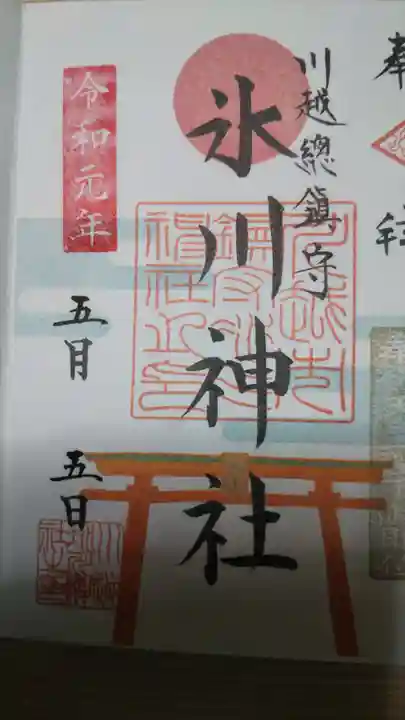 奉
拝
川越總鎮守
氷川神社
令和元年
五月
五日